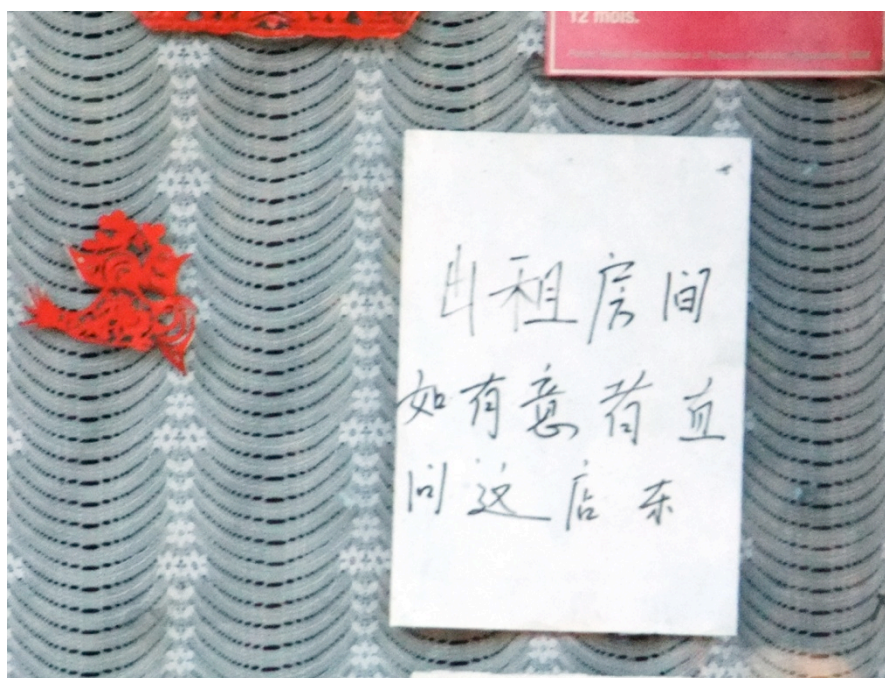 12 mois.
出租房间
如有意荷直
问这店东